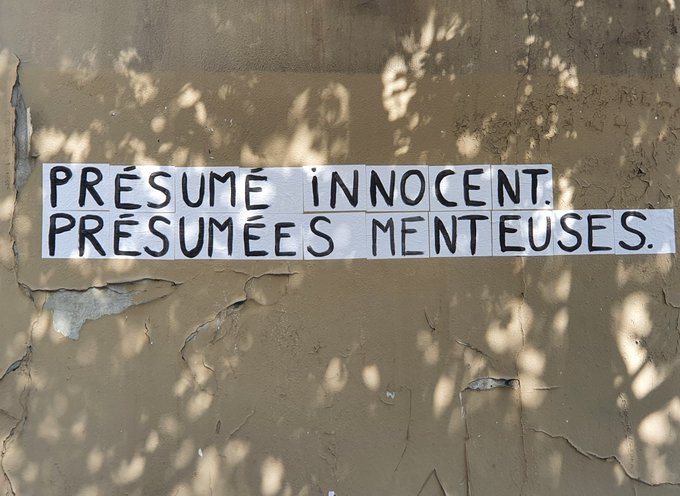 PRÉSUMÉ INNOCENT.
PRÉSUMÉES MENTEUSES.